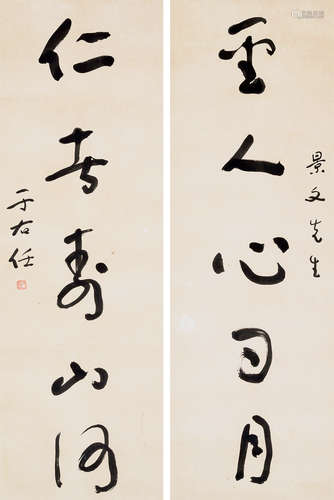 景文先生
聖人心日月
仁者壽山河
于右任